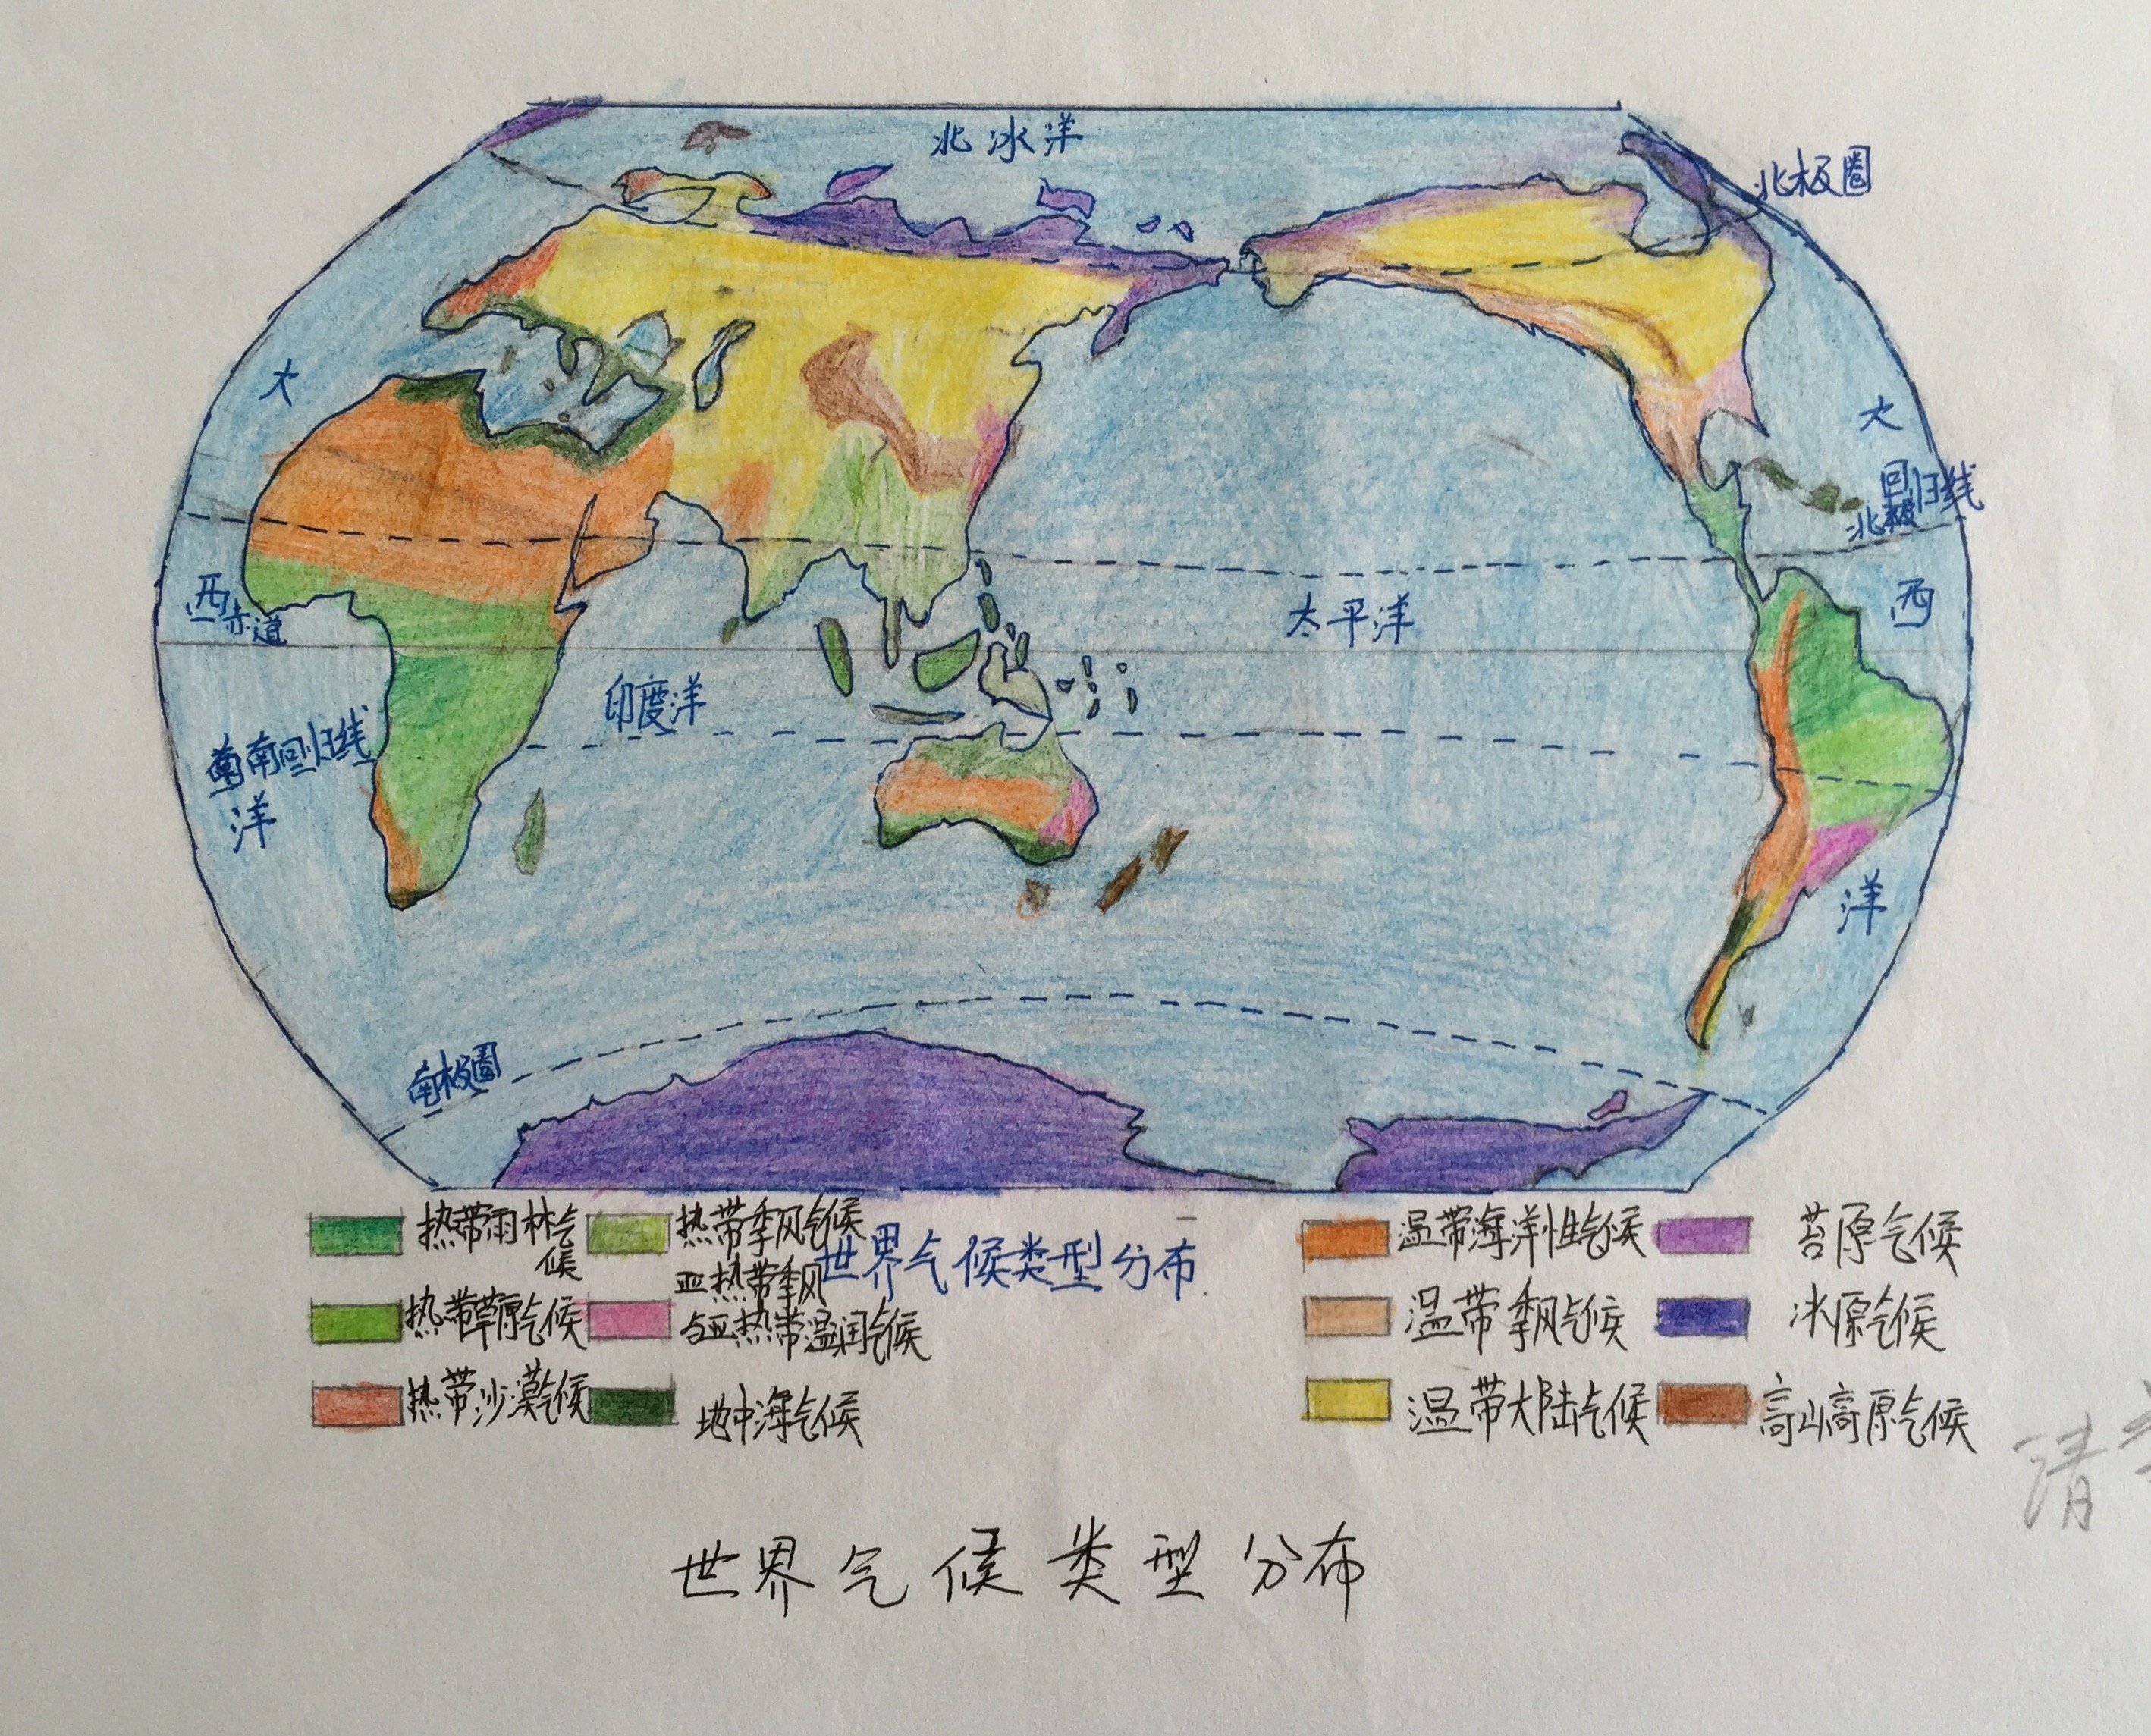 北冰洋
北极圈
大
大
回归线
北极
西
赤道
太平洋
西
印度洋
南回归线
洋
洋
南极圈
热带雨林气候
热带季风气候
世界气候类型分布
亚热带季风
与亚热带湿润气候
热带草原气候
热带沙漠气候
地中海气候
温带海洋性气候
苔原气候
温带季风气候
冰原气候
温带大陆气候
高山高原气候
清
世界气候类型分布